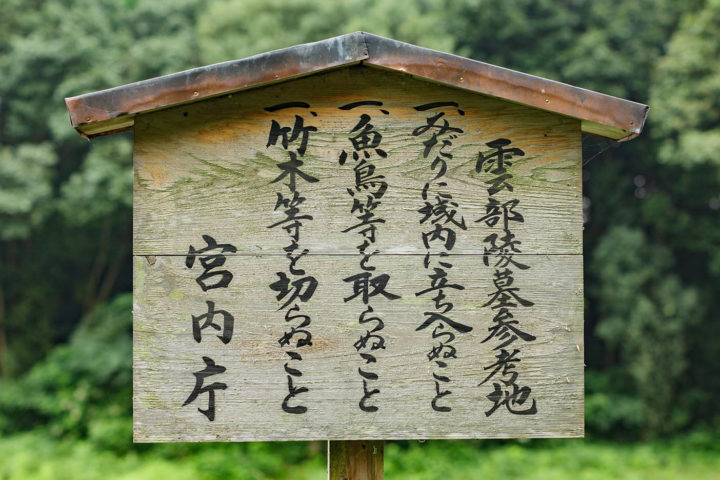 雲部陵墓参考地
一、みだりに域内に立ち入らぬこと
一、魚鳥等を取らぬこと
一、竹木等を切らぬこと
宮内庁